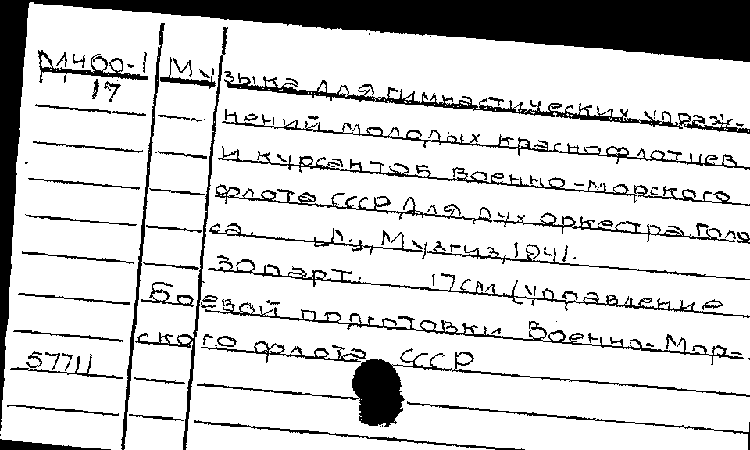 М400-1 Музыка для гимнастических упраж-
17
нений молодых краснофлотцев
и курсантов Военно-морского
флота СССР. Для дух. оркестра. Голо
са. Л., Музгиз, 1941.
30 парт. 17см. (Управление
Боевой подготовки Военно-Мор-
ского флота СССР
57711